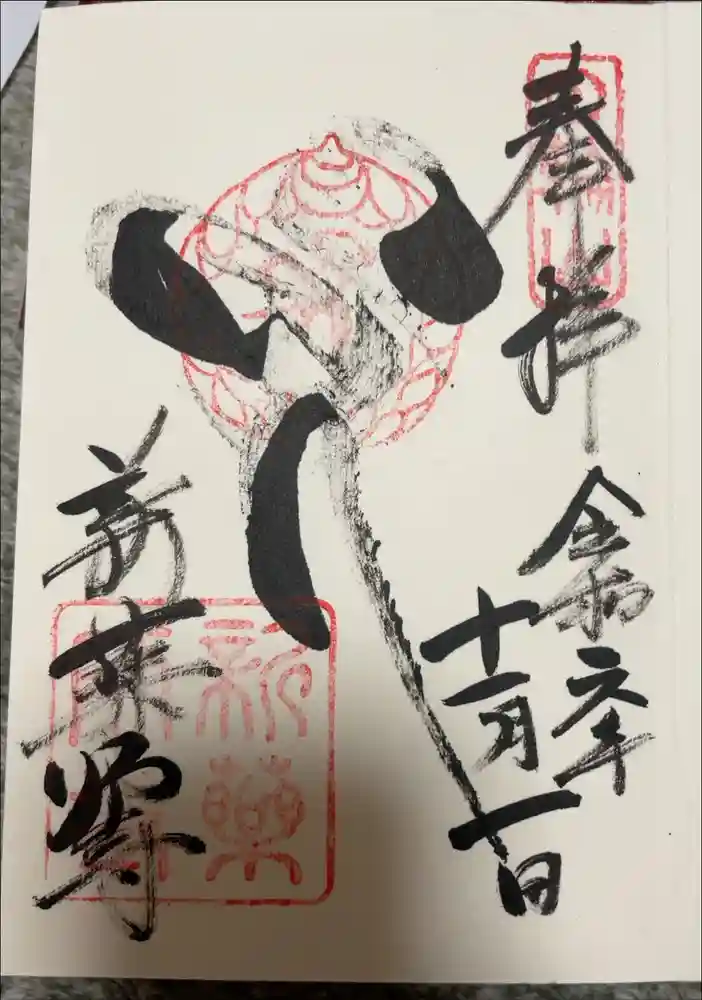 奉拝
令和元年
十一月
一日
新薬師寺
新薬
師寺